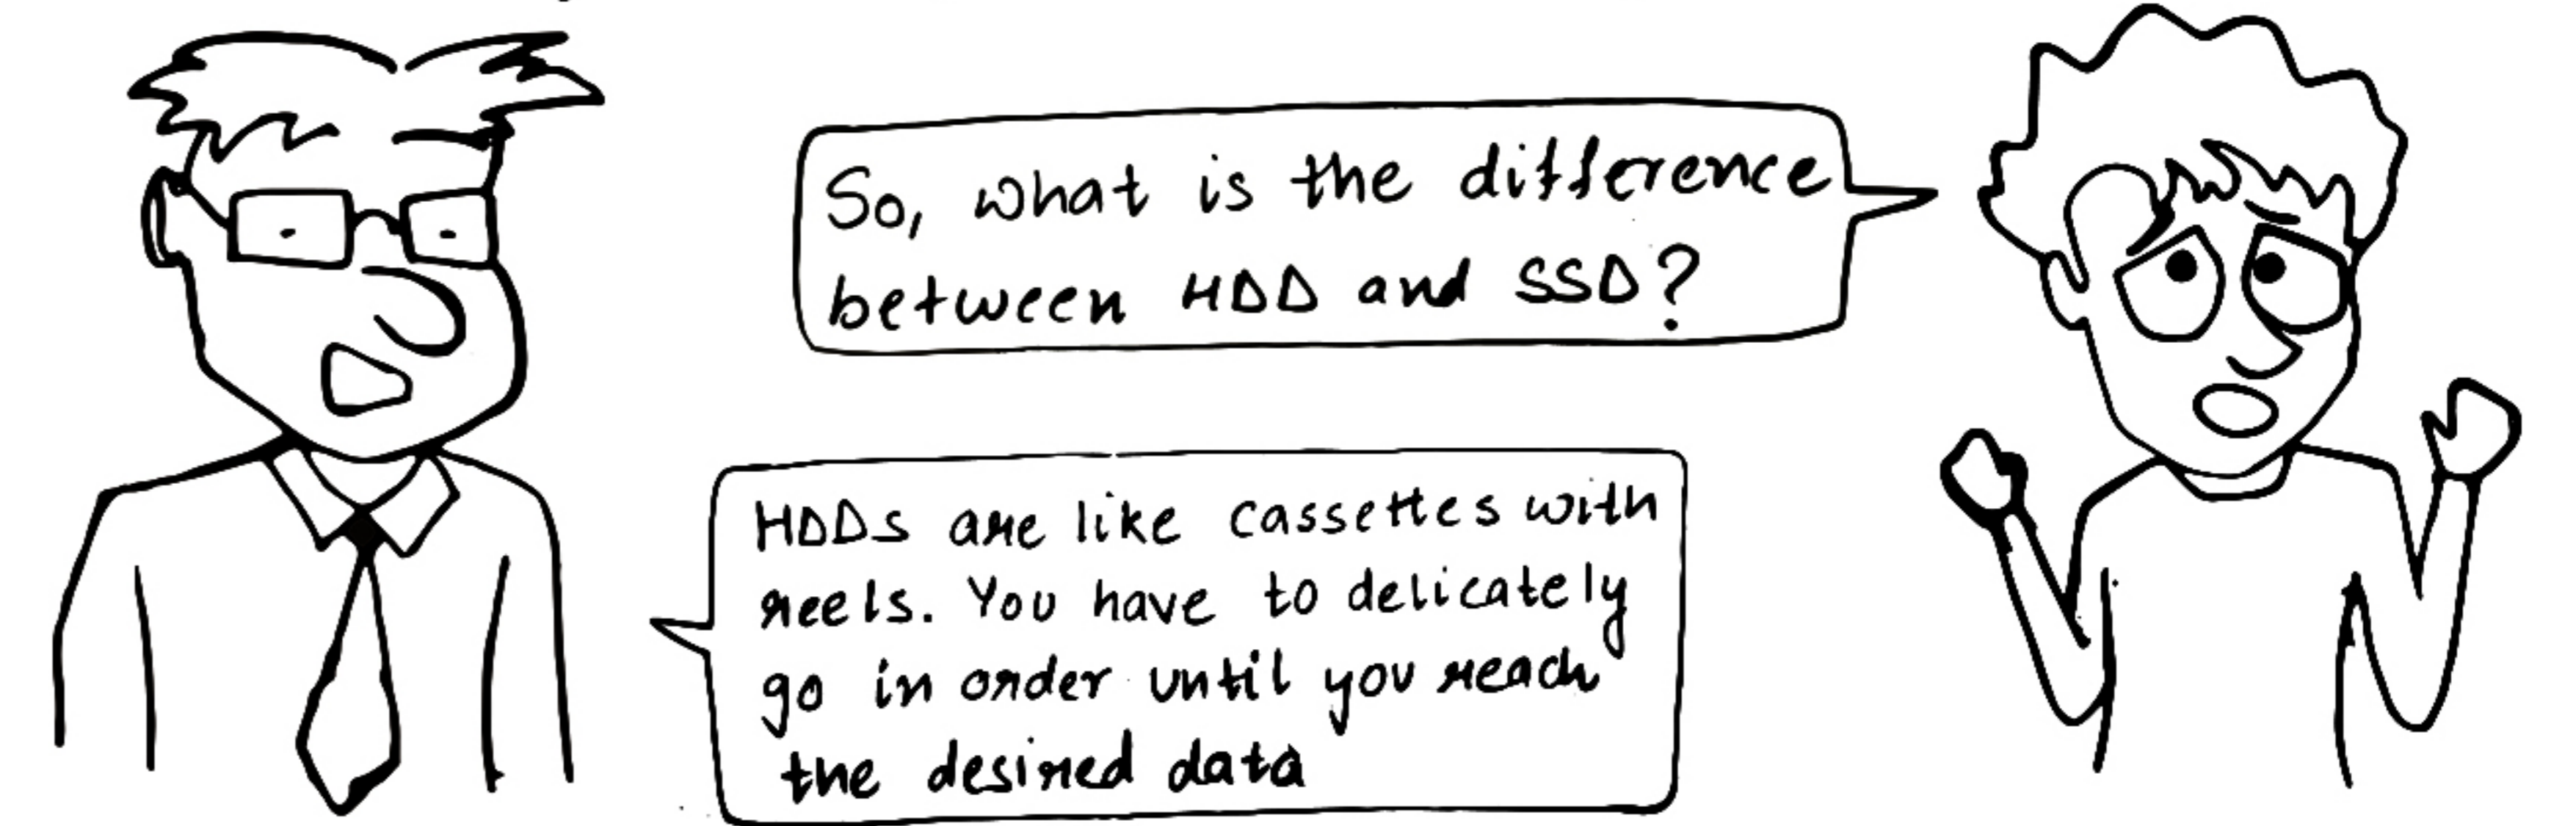 So, what is the difference
between HDD and SSD?
HDDs are like cassettes with
reels. You have to delicately
go in order until you reach
the desired data